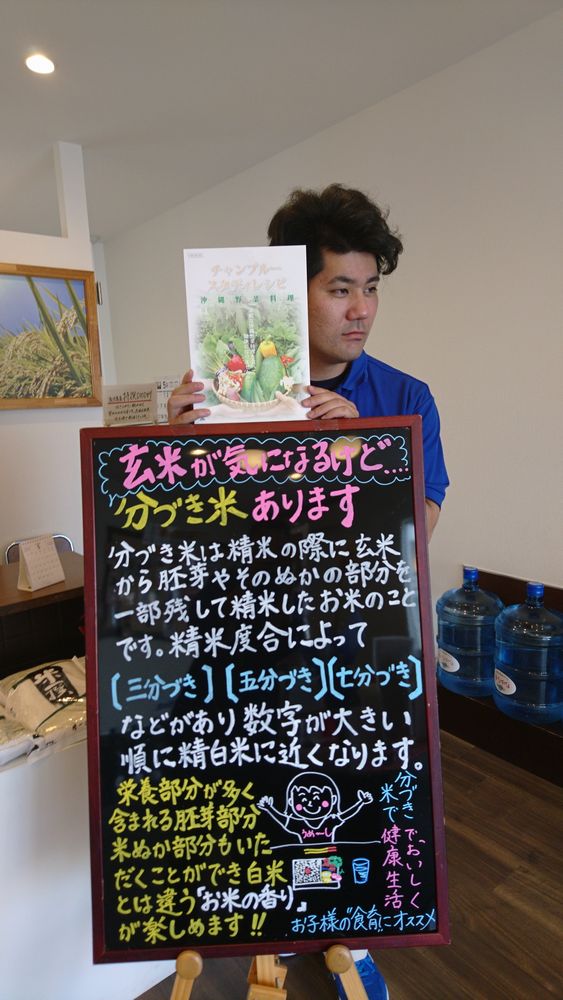 チャンプルー
スタディレシピ
沖縄野菜料理
玄米が気になるけど....
分づき米あります
分づき米は精米の際に玄米
から胚芽やそのぬかの部分を
一部残して精米したお米のこと
です。精米度合によって
[三分づき] [五分づき] [七分づき]
などがあり数字が大きい
順に精白米に近くなります。
栄養部分が多く
含まれる胚芽部分
米ぬか部分もいた
だくことができ白米
とは違う「お米の香り」
が楽しめます!!
うめ〜し
分づき
米で
でおいしく
健康生活
お子様の"食育"にオススメ